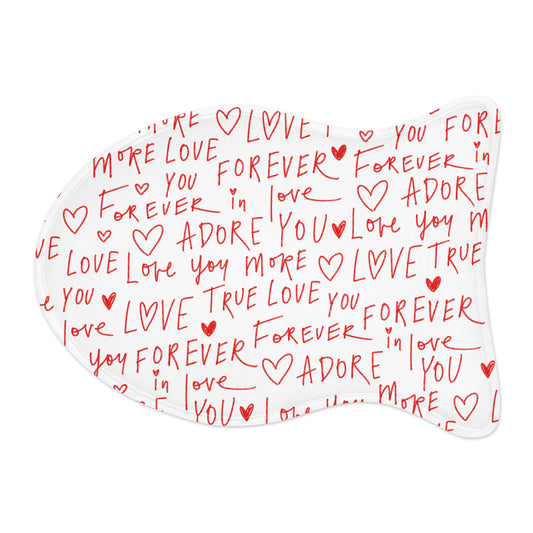 MORE ♡ LOVE YOU FOREVER
MORE LOVE YOU FOREVER ♥ FOREVER in
♡ FOREVER in love ♡ ADORE
♡ ADORE YOU ♥ Love you MORE
LOVE Love you MORE ♡ LOVE TRUE
YOU ♥ LOVE TRUE LOVE YOU FOREVER
love ♥ FOREVER in love
you FOREVER ♡ ADORE YOU
in love YOU ♥ Love you MORE ♡